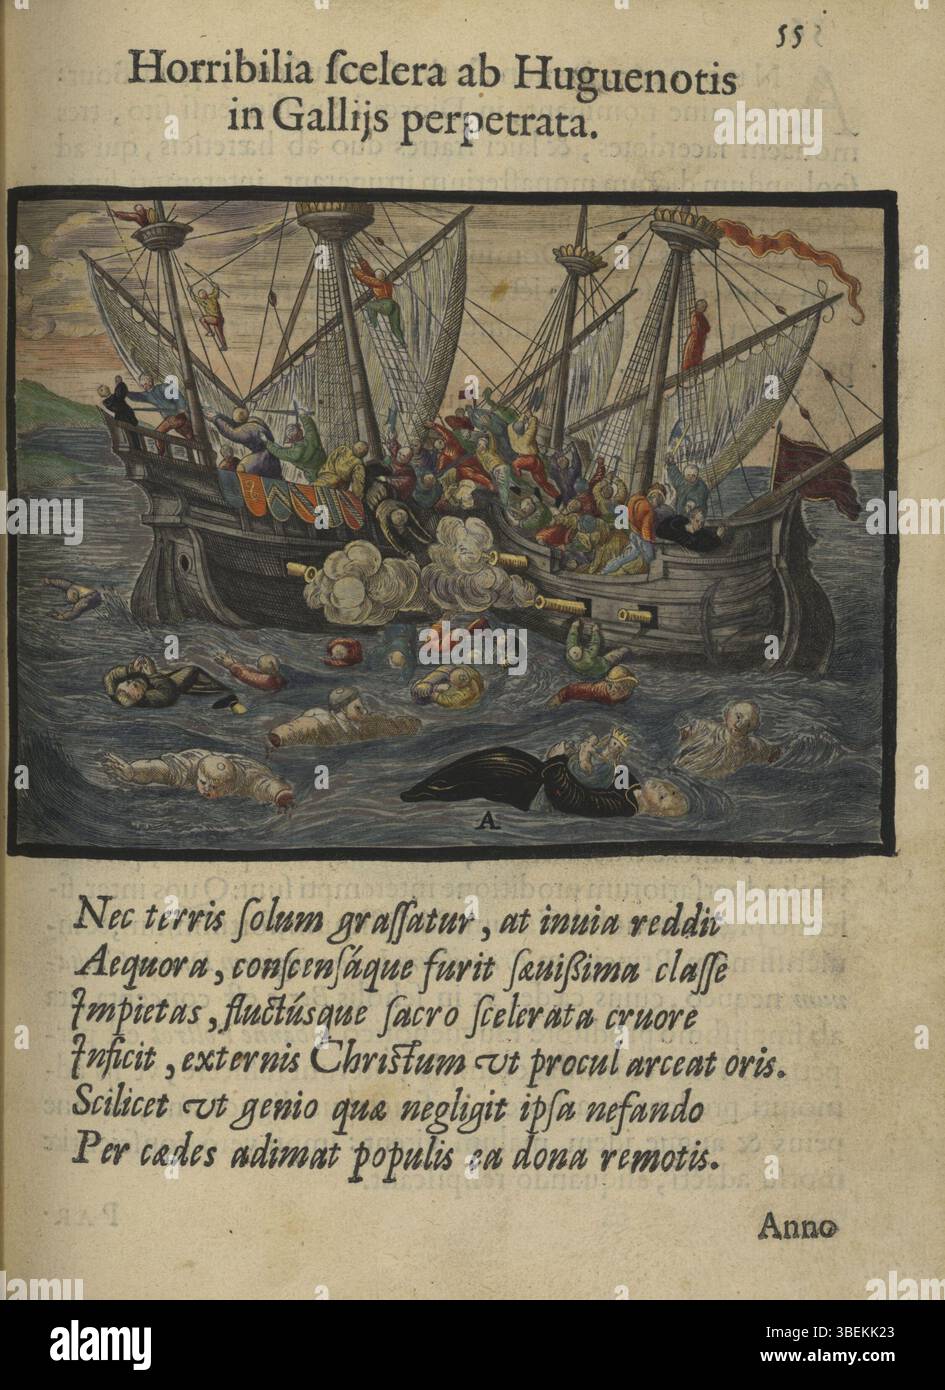 55
Horribilia ſcelera ab Huguenotis
in Gallijs perpetrata.
A
Nec terris ſolum graſſatur, at inuia reddit
Aequora, conſcenſáque furit ſæuißima claſſe
Impietas, fluctúsque ſacro ſcelerata cruore
Inficit, externis Chriſtum vt procul arceat oris.
Scilicet vt genio quæ negligit ipſa nefando
Per cædes adimat populis ea dona remotis.
Anno
alamy
Image ID: 3BEKK23
www.alamy.com